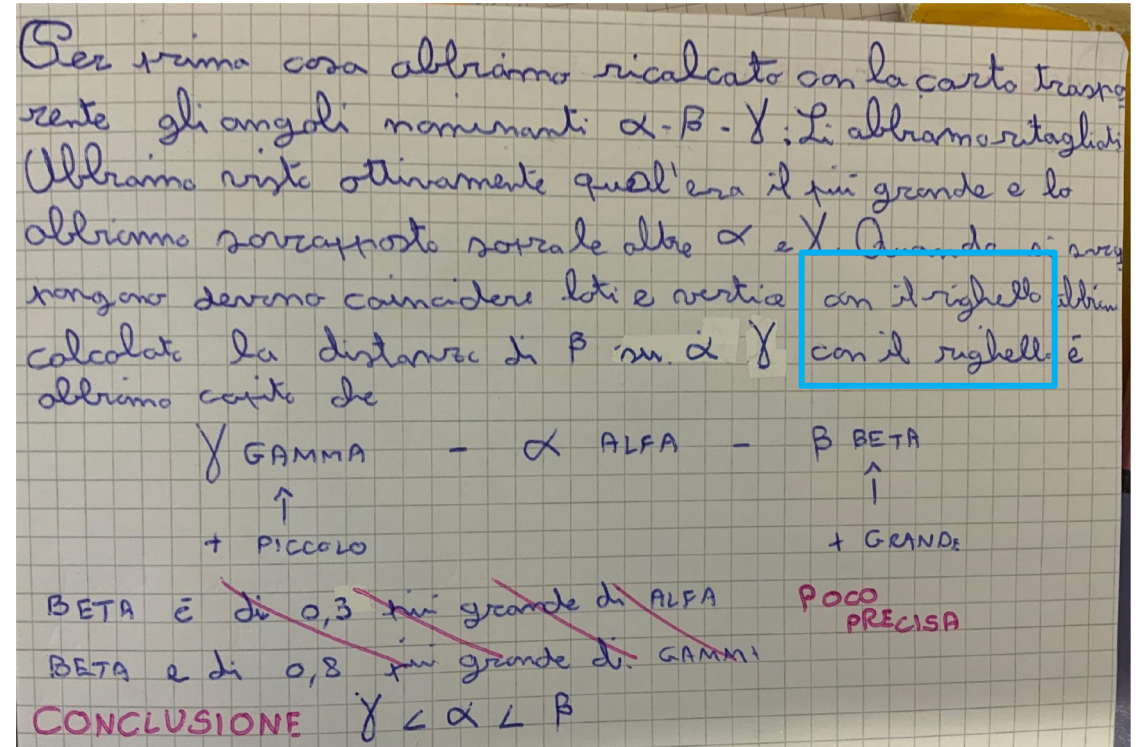 Per prima cosa abbiamo ricalcato con la carta traspa
rente gli angoli nominanti α - β - γ. Li abbiamo ritagliati
Abbiamo visto ottivamente qual'era il più grande e lo
abbiamo sovrapposto sopra le altre α e γ. Quando si sovra
pongono devono coincidere lati e vertice con il righello abbiam
calcolato la distanza di β su α γ con il righello è
abbiamo capito che
γ GAMMA - α ALFA - β BETA
↑ ↑
+ PICCOLO + GRANDE
BETA È di 0,3 più grande di ALFA POCO
PRECISA
BETA e di 0,8 più grande di GAMMA
CONCLUSIONE γ < α < β